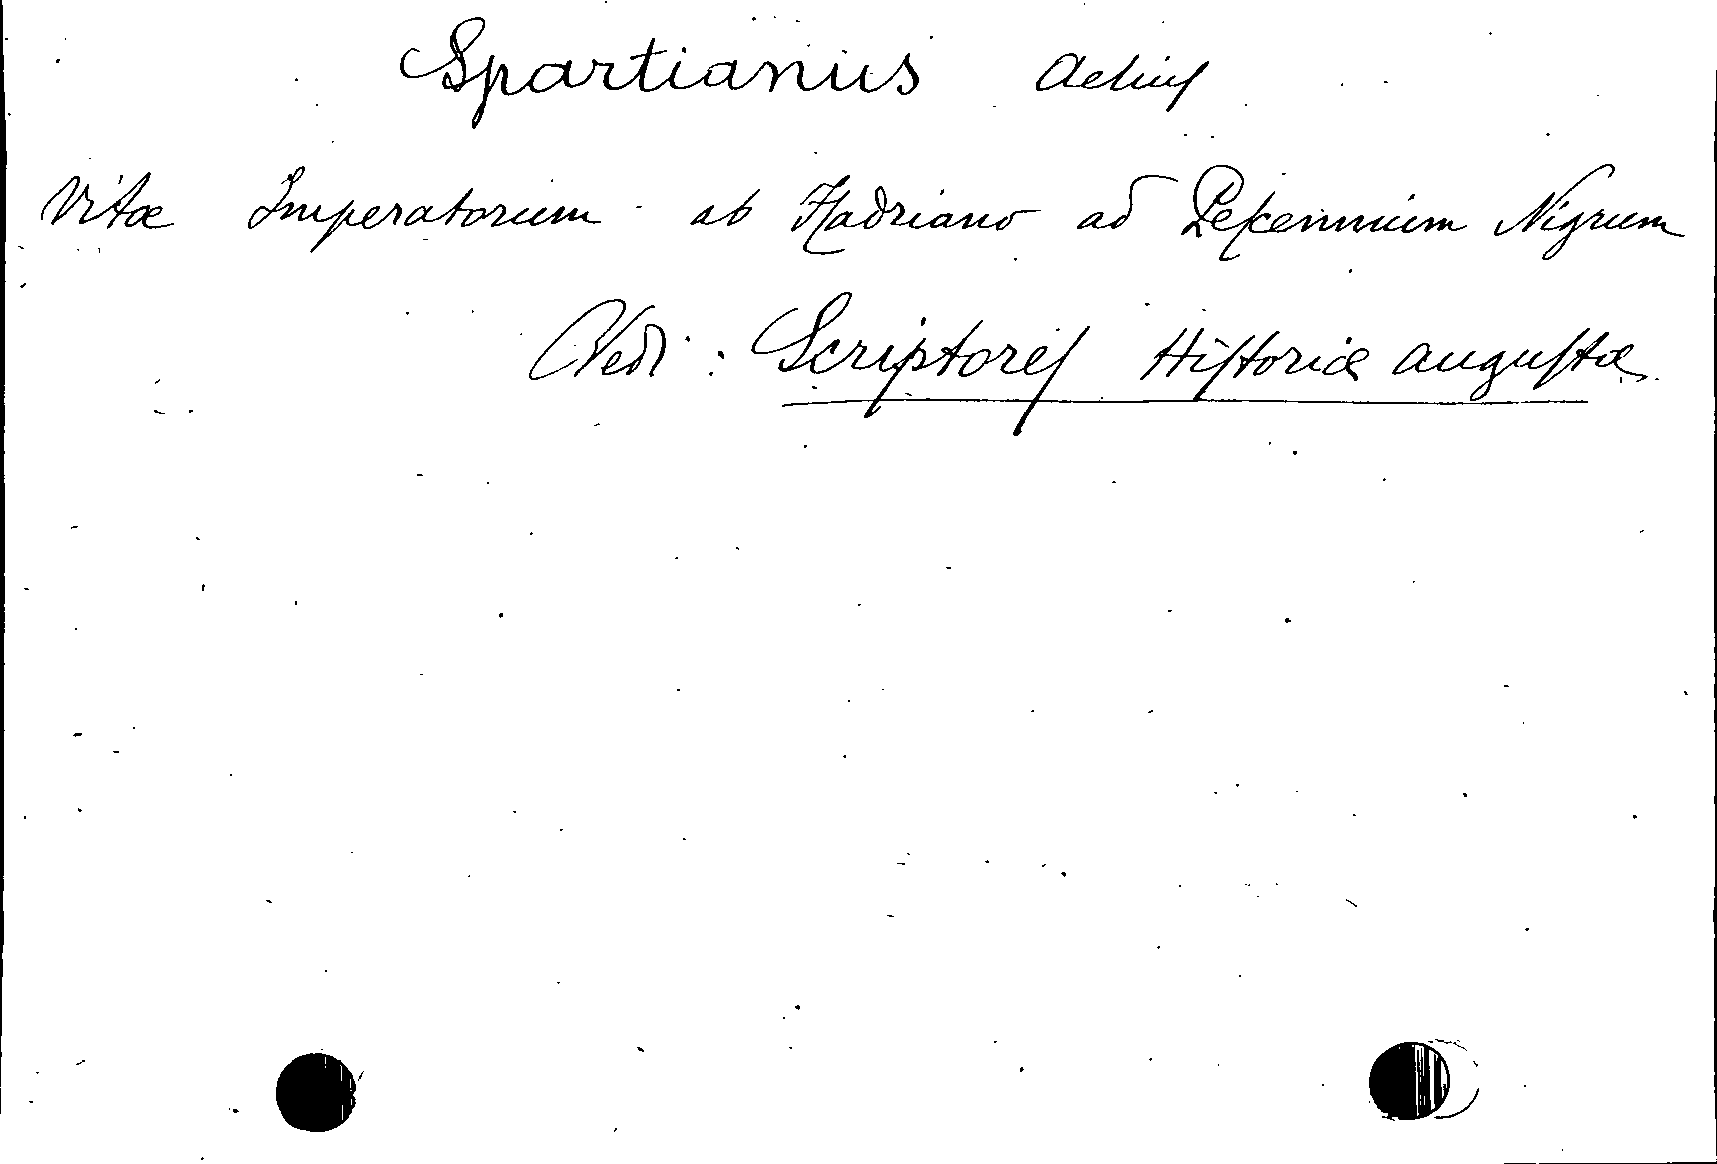 Spartianus Aelius
Vitae Imperatorum ab Hadriano ad Pescennium Nigrum
Vedi: Scriptores Historiae augustae